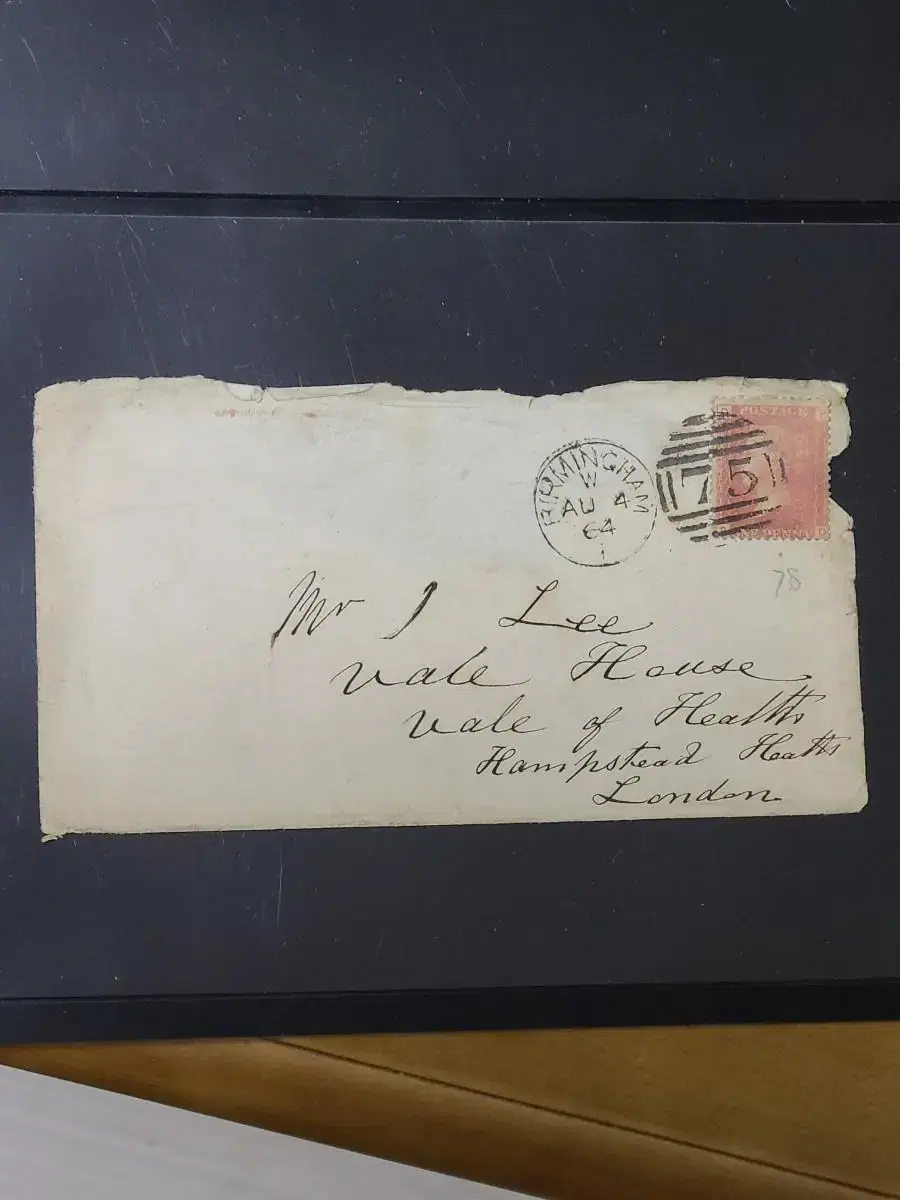 POSTAGE
ONE PENNY
D
BIRMINGHAM
W
AU 4
64
1
75
78
Mr J Lee
Vale House
Vale of Health
Hampstead Heath
London